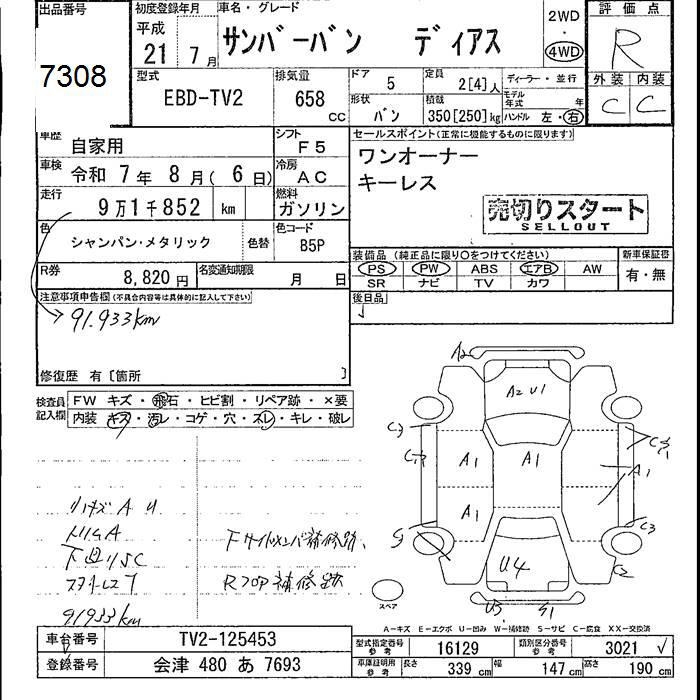 出品番号
7308
初度登録年月
平成
21年 7月
車名・グレード
サンバーバン ディアス
2WD
・
4WD
評価点
R
型式
EBD-TV2
排気量
658
CC
ドア 5
定員 2[4]人
ディーラー・並行
形状 バン
積載 350[250]kg
モデル年式 年
ハンドル 左・右
外装 内装
C C
車歴
自家用
シフト
F5
車検
令和 7年 8月( 6日)
冷房
AC
走行
9万1千852 km
燃料
ガソリン
色
シャンパン・メタリック
色替
色コード
B5P
R券
8,820円
名変通知期限
月 日
セールスポイント(正常に機能するものに限ります)
ワンオーナー
キーレス
売切りスタート
SELLOUT
装備品 (純正品に限り○をつけてください)
PS PW ABS エアB AW
SR ナビ TV カワ
新車保証書
有・無
後日品
注意事項申告欄(不具合内容等は具体的に記入して下さい)
91.933km
修復歴 有〔箇所 〕
検査員記入欄
FW キズ・飛石・ヒビ割・リペア跡・×要
内装 キズ・汚レ・コゲ・穴・スレ・キレ・破レ
リハキズ A U
下回リSC
91933km
Fサイドメンバ補修跡、
Rフロア補修跡
A2
A2 U1
C1
A1
A1
A1
A1
C3
C2
U4
U3
S1
スペア
A-キズ E-エクボ U-凹み W-補修跡 S-サビ C-腐食 XX-交換済
車台番号
TV2-125453
登録番号
会津 480 あ 7693
型式指定番号 参考
16129
類別区分番号 参考
3021
車庫証明用 参考
長さ 339 cm
幅 147 cm
高さ 190 cm